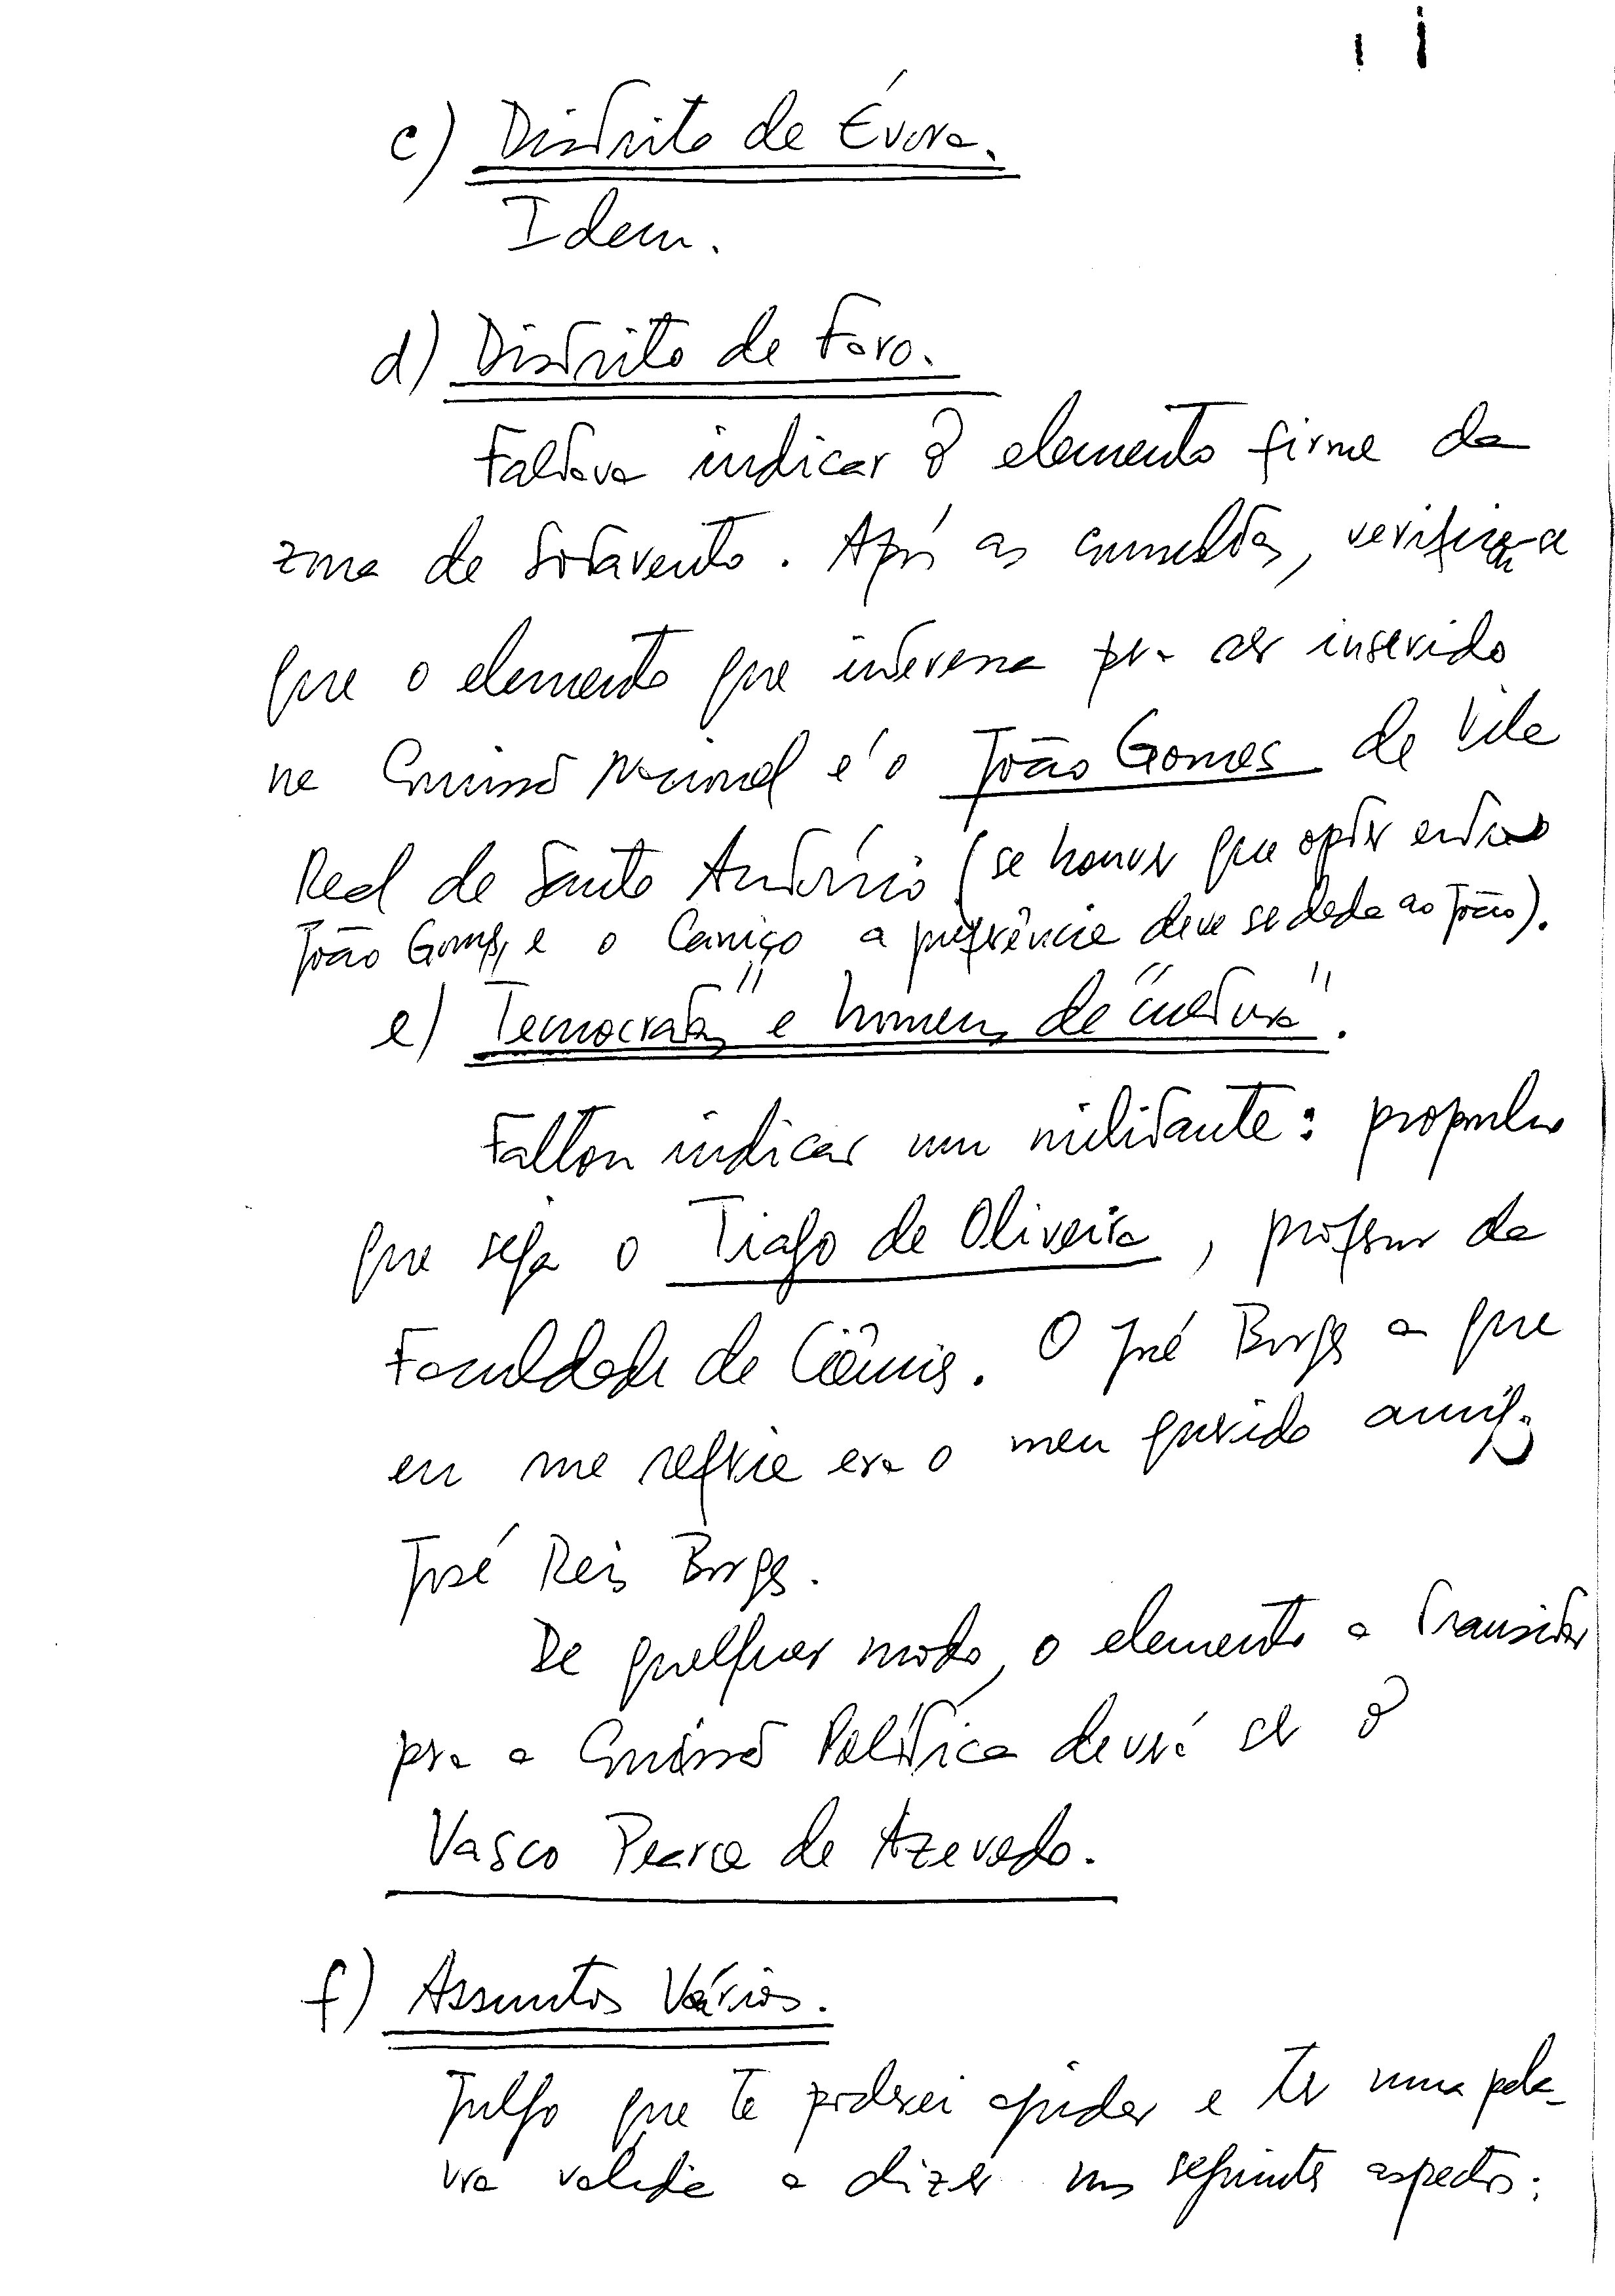 c) Distrito de Évora.
Idem.
d) Distrito de Faro.
Faltava indicar o elemento firme da
zona de Sotavento. Após as consultas, verifica-se
que o elemento que interessa para ser inserido
na Comissão Nacional é o João Gomes de Vila
Real de Santo António (se houver que optar entre o
João Gomes e o Caniço a preferência deve ser dada ao João).
e) Tecnocratas" e homens de "cultura".
Faltou indicar um militante: proponho
que seja o Tiago de Oliveira, professor da
Faculdade de Ciências. O José Borges a que
eu me referia era o meu querido amigo
José Reis Borges.
De qualquer modo, o elemento a transitar
para a Comissão Política deverá ser o
Vasco Pearce de Azevedo.
f) Assuntos Vários.
Julgo que te poderei ajudar e ter uma pala-
vra válida a dizer nos seguintes aspectos: